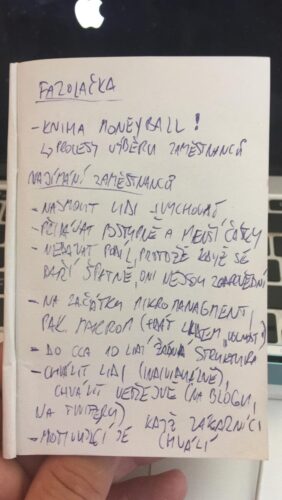 FAZOLAČKA
- KNIHA MONEYBALL!
↳ PROCESY VÝBĚRU ZAMĚSTNANCŮ
NAJÍMÁNÍ ZAMĚSTNANCŮ
- NAJMOUT LIDI A VYCHOVAT
- PŘIDÁVAT POSTUPNĚ A MENŠÍ ČÁSTKY
- NEDÁVAT PODÍL, PROTOŽE KDYŽ SE
DAŘÍ ŠPATNĚ, ONI NEJSOU
- NA ZAČÁTKU MIKROMANAGMENT,
PAK MAKROM
- DO CCA 10 LIDÍ ŽÁDNÁ STRUKTURA
- CHVÁLIT LIDI (INDIVIDUÁLNĚ),
CHVÁLIT VEŘEJNĚ (NA BLOGU,
NA TWITTERU)
- MOTIVUJÍCÍ JE KDYŽ ZÁKAZNÍCI
CHVÁLÍ